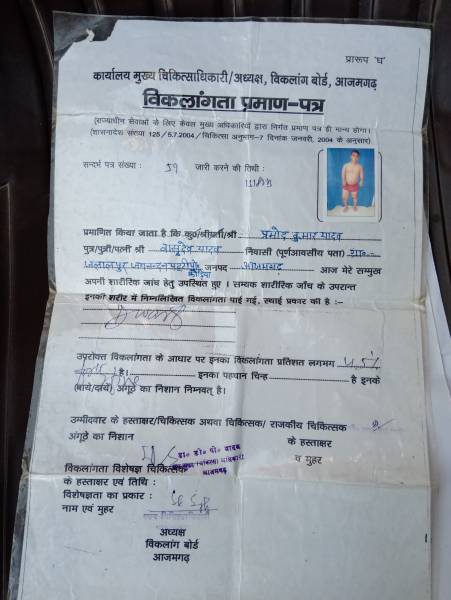 प्रारूप 'घ'
कार्यालय मुख्य चिकित्साधिकारी/अध्यक्ष, विकलांग बोर्ड, आजमगढ़
विकलांगता प्रमाण-पत्र
(राज्याधीन सेवाओं के लिए केवल मुख्य अधिकारियों द्वारा निर्गत प्रमाण पत्र ही मान्य होगा।)
(शासनादेश संख्या 125/5.7.2004/चिकित्सा अनुभाग-7 दिनांक जनवरी, 2004 के अनुसार)
सन्दर्भ पत्र संख्या : 59 जारी करने की तिथि :
प्रमाणित किया जाता है कि कु0/श्रीमती/श्री प्रमोद कुमार यादव
पुत्र/पुत्री/पत्नी श्री वासुदेव यादव निवासी (पूर्णआवसीय पता) ग्रा०-
जलालपुर जनपद आजमगढ़ आज मेरे सम्मुख
अपनी शारीरिक जांच हेतु उपस्थित हुए। सम्यक शारीरिक जाँच के उपरान्त
इनकी शरीर में निम्नलिखित विकलांगता पाई गई, स्थाई प्रकार की है :-
उपरोक्त विकलांगता के आधार पर इनका विकलांगता प्रतिशत लगभग 45%
है। इनका पहचान चिन्ह है इनके
(बायें/दायें) अंगूठे का निशान निम्नवत् है।
उम्मीदवार के हस्ताक्षर/चिकित्सक अथवा चिकित्सक/ राजकीय चिकित्सक
अंगूठे का निशान के हस्ताक्षर
व मुहर
डा० डी० पी० यादव
विकलांगता विशेषज्ञ चिकित्सक
आजमगढ़
के हस्ताक्षर एवं तिथि :
विशेषज्ञता का प्रकार :
नाम एवं मुहर
अध्यक्ष
विकलांग बोर्ड
आजमगढ़